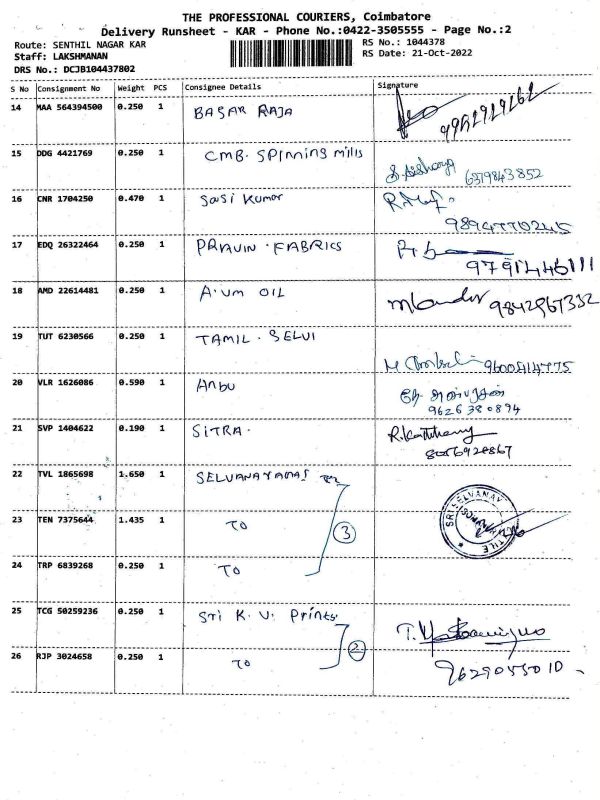 THE PROFESSIONAL COURIERS, Coimbatore
Delivery Runsheet - KAR - Phone No.:0422-3505555 - Page No.:2
Route: SENTHIL NAGAR KAR
RS No.: 1044378
Staff: LAKSHMANAN
RS Date: 21-Oct-2022
DRS No.: DCJB104437802
S No Consignment No Weight PCS Consignee Details Signature
14 MAA 564394500 0.250 1 BAGAR RAJA
15 DDG 4421769 0.250 1 CMB. SPINNING MILLS
6379843852
16 CNR 1704250 0.470 1 Sasi Kumar
17 EDQ 26322464 0.250 1 PRAVIN. FABRICS
9791446111
18 AMD 22614481 0.250 1 A.UM OIL 9842967332
19 TUT 6230566 0.250 1 TAMIL. SELVI
20 VLR 1626086 0.590 1 Anbu
9626380894
21 SVP 1404622 0.190 1 SITRA.
8056920867
22 TVL 1865698 1.650 1 SELVANAYAGAS
23 TEN 7375644 1.435 1 TO 3
24 TRP 6839268 0.250 1 TO
25 TCG 50259236 0.250 1 Sri K. V. Prints
26 RJP 3024658 0.250 1 TO 2